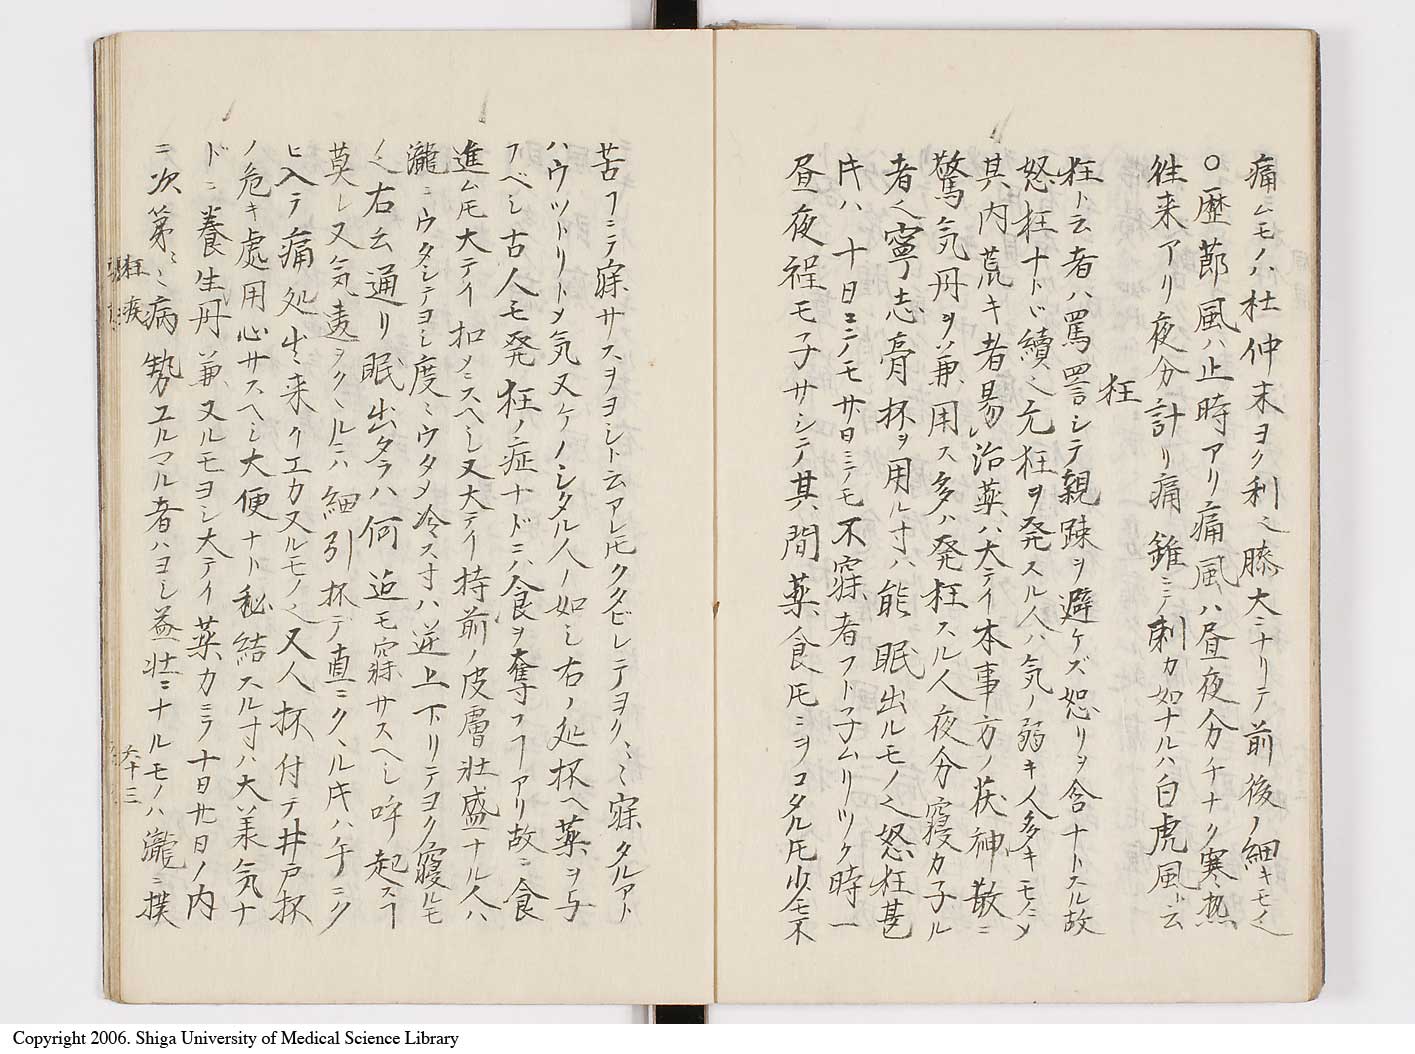 痛ムモノハ杜仲末ヨク利之膝大ニナリテ前後ノ細キモノ也
○歴節風ハ止時アリ痛風ハ昼夜分チナク寒熱
往来アリ夜分計リ痛錐ニテ刺カ如ナルハ白虎風ト云
狂
狂ト云者ハ罵詈シテ親疎ヲ避ケズ怒リヲ含ナトスル故
怒狂ナト続之元狂ヲ発スル人ハ気ノ弱キ人多キモノニメ
其内荒キ者易治薬ハ大テイ本事方ノ茯神散ニ
驚気丹ヲ兼用ス多ハ発狂スル人夜分寝カ子ル
者也寧志膏杯ヲ用ル寸ハ能眠出ルモノ也怒狂甚
キハ十日ニテモ廿日ニテモ不寐者フト子ムリツク時一
昼夜程モ子サシテ其間薬食𪜈ミヲコタル𪜈少モ不
苦フニテ寐サスヲヨシト云アレ𪜈クタビレテヨクミミ寐タルアト
ハウツトリトメ気又ケノシタル人ノ如シ右ノ処杯ヘ薬ヲ与
フベシ古人モ発狂ノ症ナドニハ食ヲ奪フヿアリ故ニ食
進ム𪜈大テイ扣メニスヘシ又大テイ持前ノ皮膚壮盛ナル人ハ
瀧ニウタシテヨシ度ミウタメ冷ス寸ハ逆上下リテヨク寝ルモ
ノ也右云通リ眠出タラハ何迄モ寐サスヘシ呼起スヿ
莫レ又気遠ヲクヽルニハ細引杯デ直ニクヽル𪜈ハ午ニク
ヒ入テ痛処生来クエカ又ルモノ也又人杯付テ井戸杯
ノ危キ處用心サスヘシ大便ナト秘結スル寸ハ大羕気ナ
ドニ養生丹兼又ルモヨシ大テイ薬カニテ十日廿日ノ内
ニ次第ミニ病勢ユルマル者ハヨシ益壮ニナルモノハ瀧ニ撲
狂疾
六十三
Copyright 2006. Shiga University of Medical Science Library